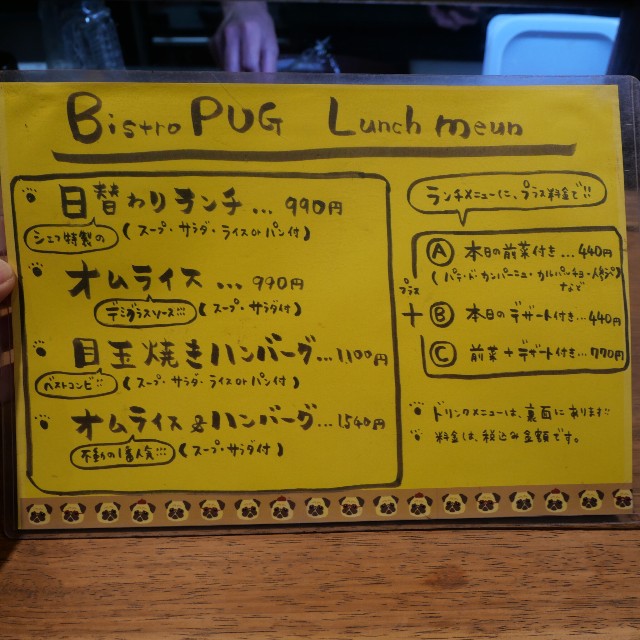 Bistro PUG Lunch meun
日替わりランチ...990円
シェフ特製の
(スープ・サラダ・ライスorパン付)
オムライス...990円
デミグラスソース!!!
(スープ・サラダ付)
目玉焼きハンバーグ...1,100円
ベストコンビ!!
(スープ・サラダ・ライスorパン付)
オムライス&ハンバーグ...1,540円
不動の1番人気!!!
(スープ・サラダ付)
ランチメニューに、プラス料金で!!
プラス
+
Ⓐ 本日の前菜付き...440円
(パテ・ド・カンパーニュ・カルパッチョ・人参ラペ)
など
Ⓑ 本日のデザート付き...440円
Ⓒ 前菜+デザート付き...770円
ドリンクメニューは、裏面にあります!!
料金は、税込み金額です。